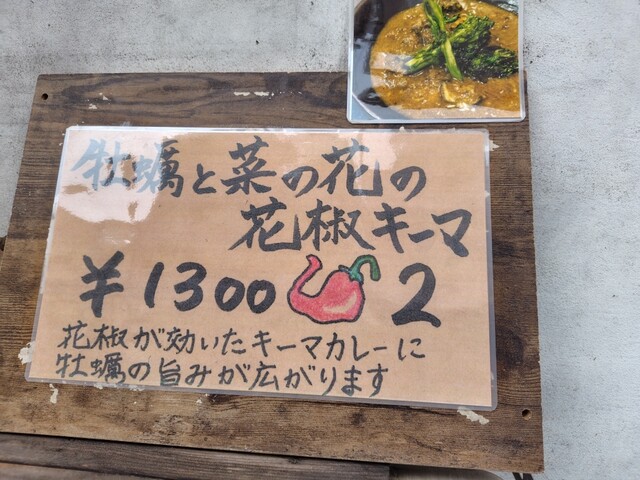 牡蠣と菜の花の
花椒キーマ
¥1300 2
花椒が効いたキーマカレーに
牡蠣の旨みが広がります